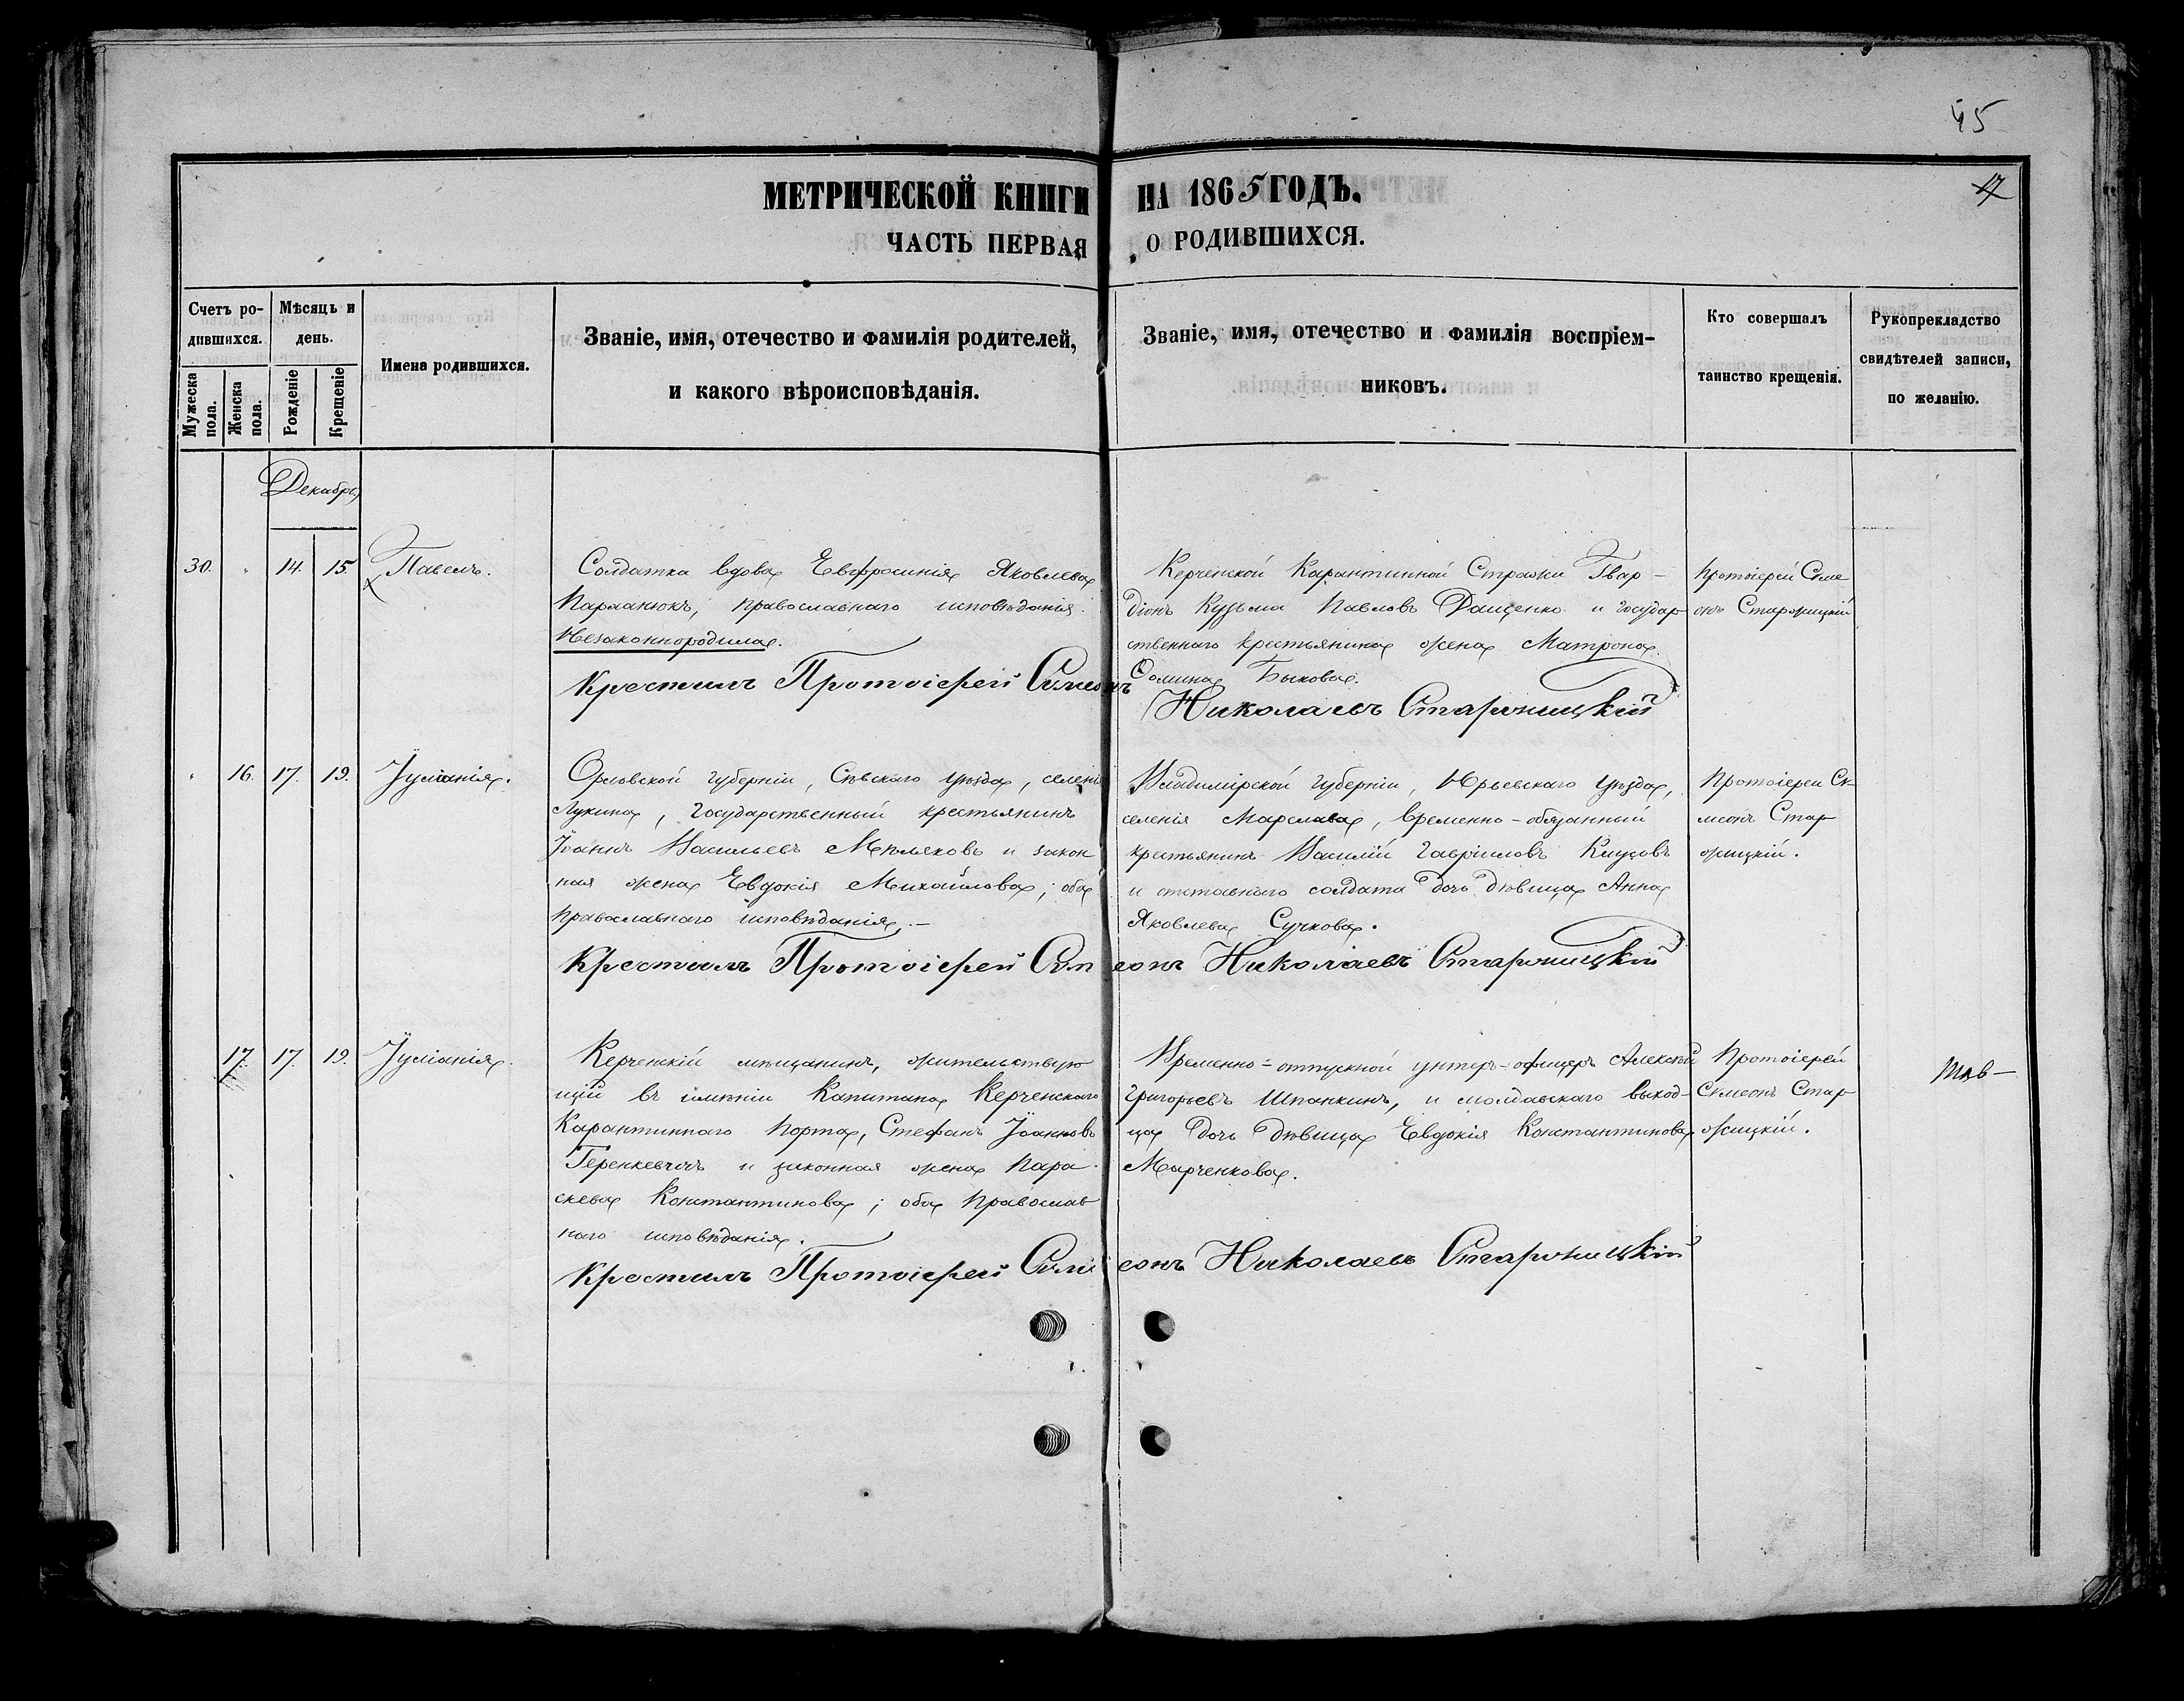 45
17
МЕТРИЧЕСКОЙ КНИГИ НА 1865 ГОДЪ.
ЧАСТЬ ПЕРВАЯ, О РОДИВШИХСЯ.
Счетъ ро-
дившихся.
Мужеска пола.
Женска пола.
Мѣсяцъ и день.
Рожденіе
Крещеніе
Имена родившихся.
Званіе, имя, отечество и фамилія родителей,
и какого вѣроисповѣданія.
Званіе, имя, отечество и фамилія воспріем-
никовъ.
Кто совершалъ
таинство крещенія.
Рукоприкладство
свидѣтелей записи,
по желанію.
Декабрь
30. 14. 15. Павелъ.
Солдатка вдова Евфросинія Яковлева
православнаго исповѣданія.
Незаконнородила.
Керченской Карантинной Стражи Гвар-
діонъ Кузьма Павловъ Дащенко и государ
ственнаго крестьянина жена Матрона
Фомина Быкова.
Протоіерей Симе
онъ Старжицкій
Крестилъ Протоіерей Симеонъ
Николаевъ Старжицкій
16. 17. 19. Іуліанія.
Орловской губерніи, Сѣвскаго уѣзда, селенія
Лукина, государственный крестьянинъ
Іоаннъ Васильевъ Мѣляковъ и закон
ная жена Евдокія Михайлова; оба
православнаго исповѣданія.—
Владимірской губерніи, Юрьевскаго уѣзда,
селенія временно-обязанный
крестьянинъ Василій Гавріиловъ
и отставнаго солдата дочь дѣвица Анна
Яковлева Сучкова.
Протоіерей Си
меонъ Стар
жицкій.
Крестилъ Протоіерей Симеонъ Николаевъ Старжицкій
17. 17. 19. Іуліанія.
Керченскій мѣщанинъ, жительствую
щій въ имѣніи Капитана Керченскаго
Карантиннаго Порта, Стефанъ Іоанновъ
Геренкевичъ и законная жена Пара
скева Константинова; оба православ
наго исповѣданія.
Временно-отпускной унтеръ-офицеръ Алексѣй
Григорьевъ Шпанкинъ, и молдавскаго выход-
ца дочь дѣвица Евдокія Константинова
Марченкова.
Протоіерей
Симеонъ Стар
жицкій.
Крестилъ Протоіерей Симеонъ Николаевъ Старжицкій